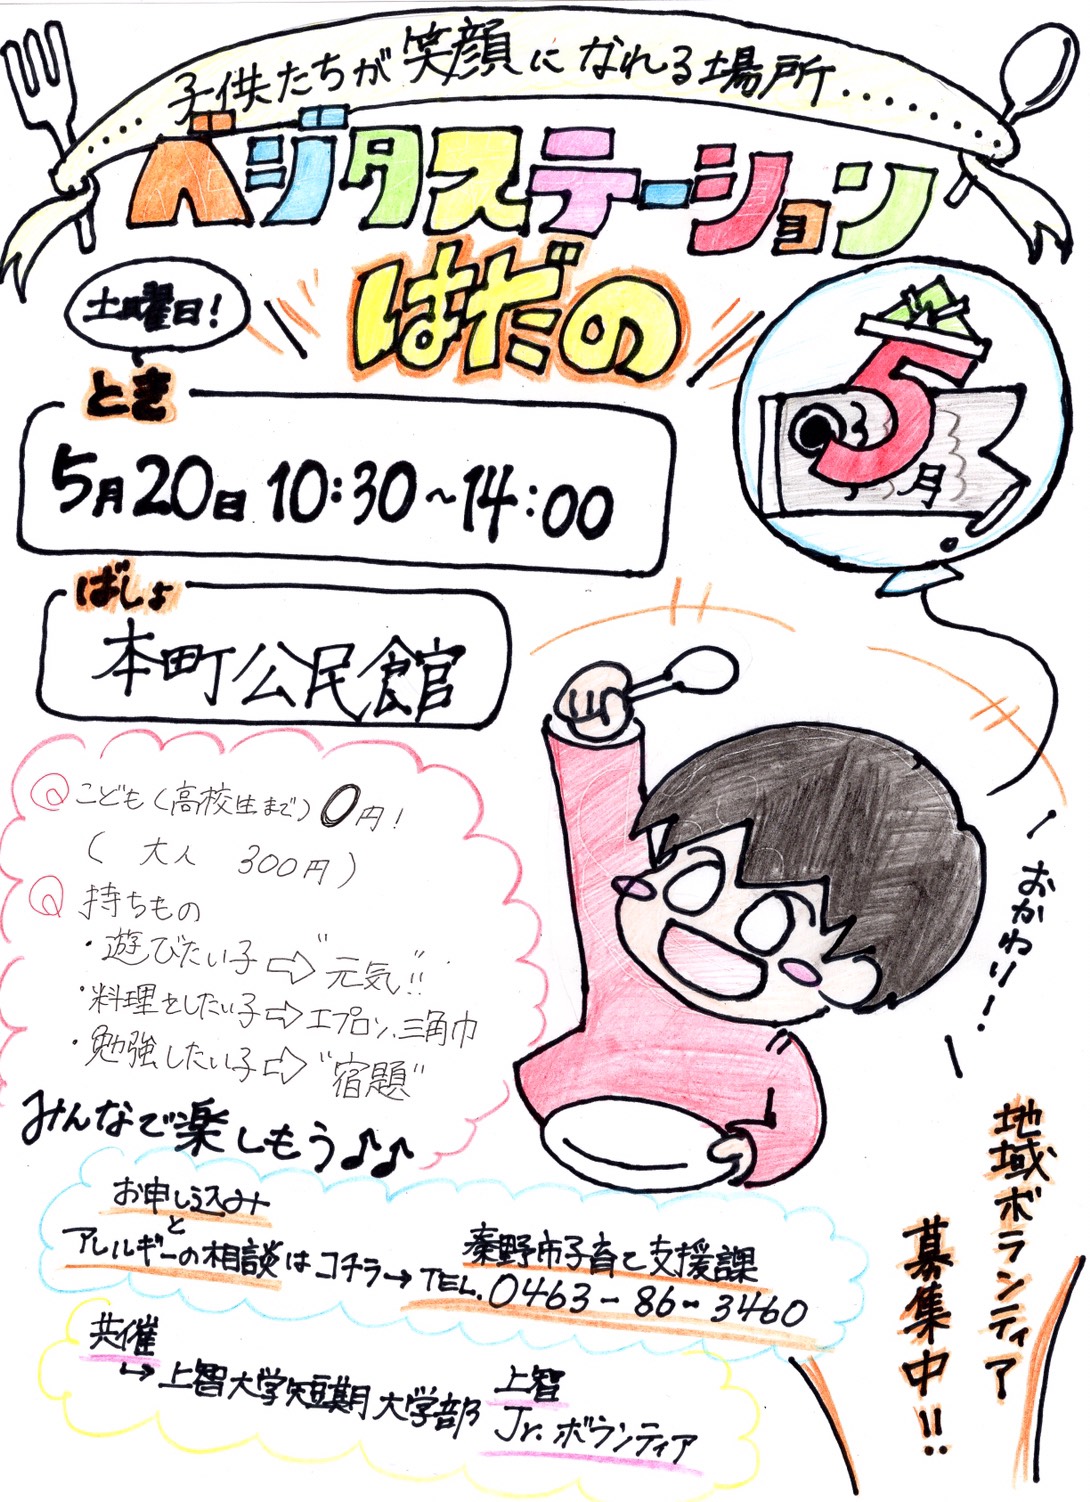 子供たちが笑顔になれる場所……
ベジタステーション
はだの
土曜日！
5月
とき
5月20日 10:30～14:00
ばしょ
本町公民館
こども（高校生まで）0円！
（大人 300円）
持ちもの
・遊びたい子⇨"元気"!!
・料理をしたい子⇨エプロン、三角巾
・勉強したい子⇨"宿題"
みんなで楽しもう♪♪
おかわり！
お申し込み
と
アレルギーの相談はコチラ→
秦野市子育て支援課
TEL. 0463-86-3460
共催
↳上智大学短期大学部
上智
Jr.ボランティア
地域ボランティア
募集中!!